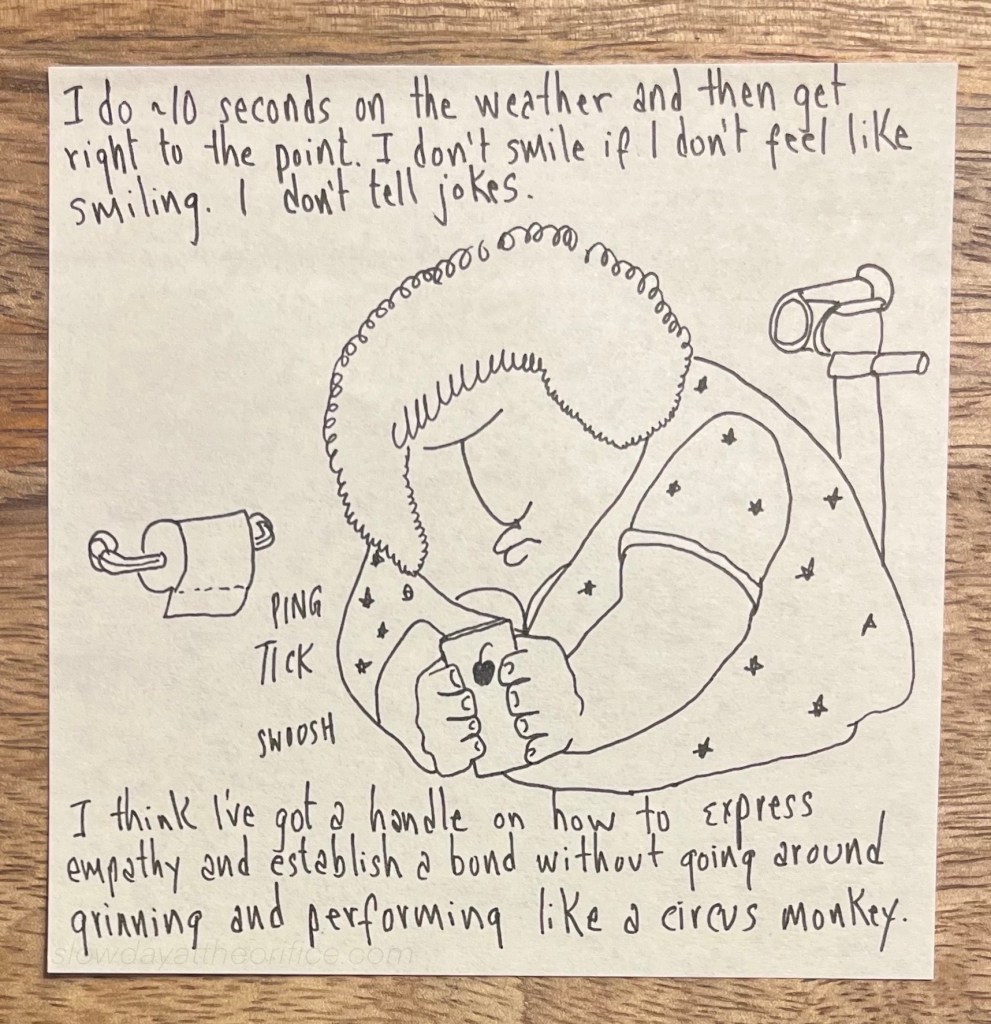 I do ~10 seconds on the weather and then get
right to the point. I don't smile if I don't feel like
smiling. I don't tell jokes.
PING
TICK
SWOOSH
I think I've got a handle on how to express
empathy and establish a bond without going around
grinning and performing like a circus monkey.
slowdayattheorifice.com